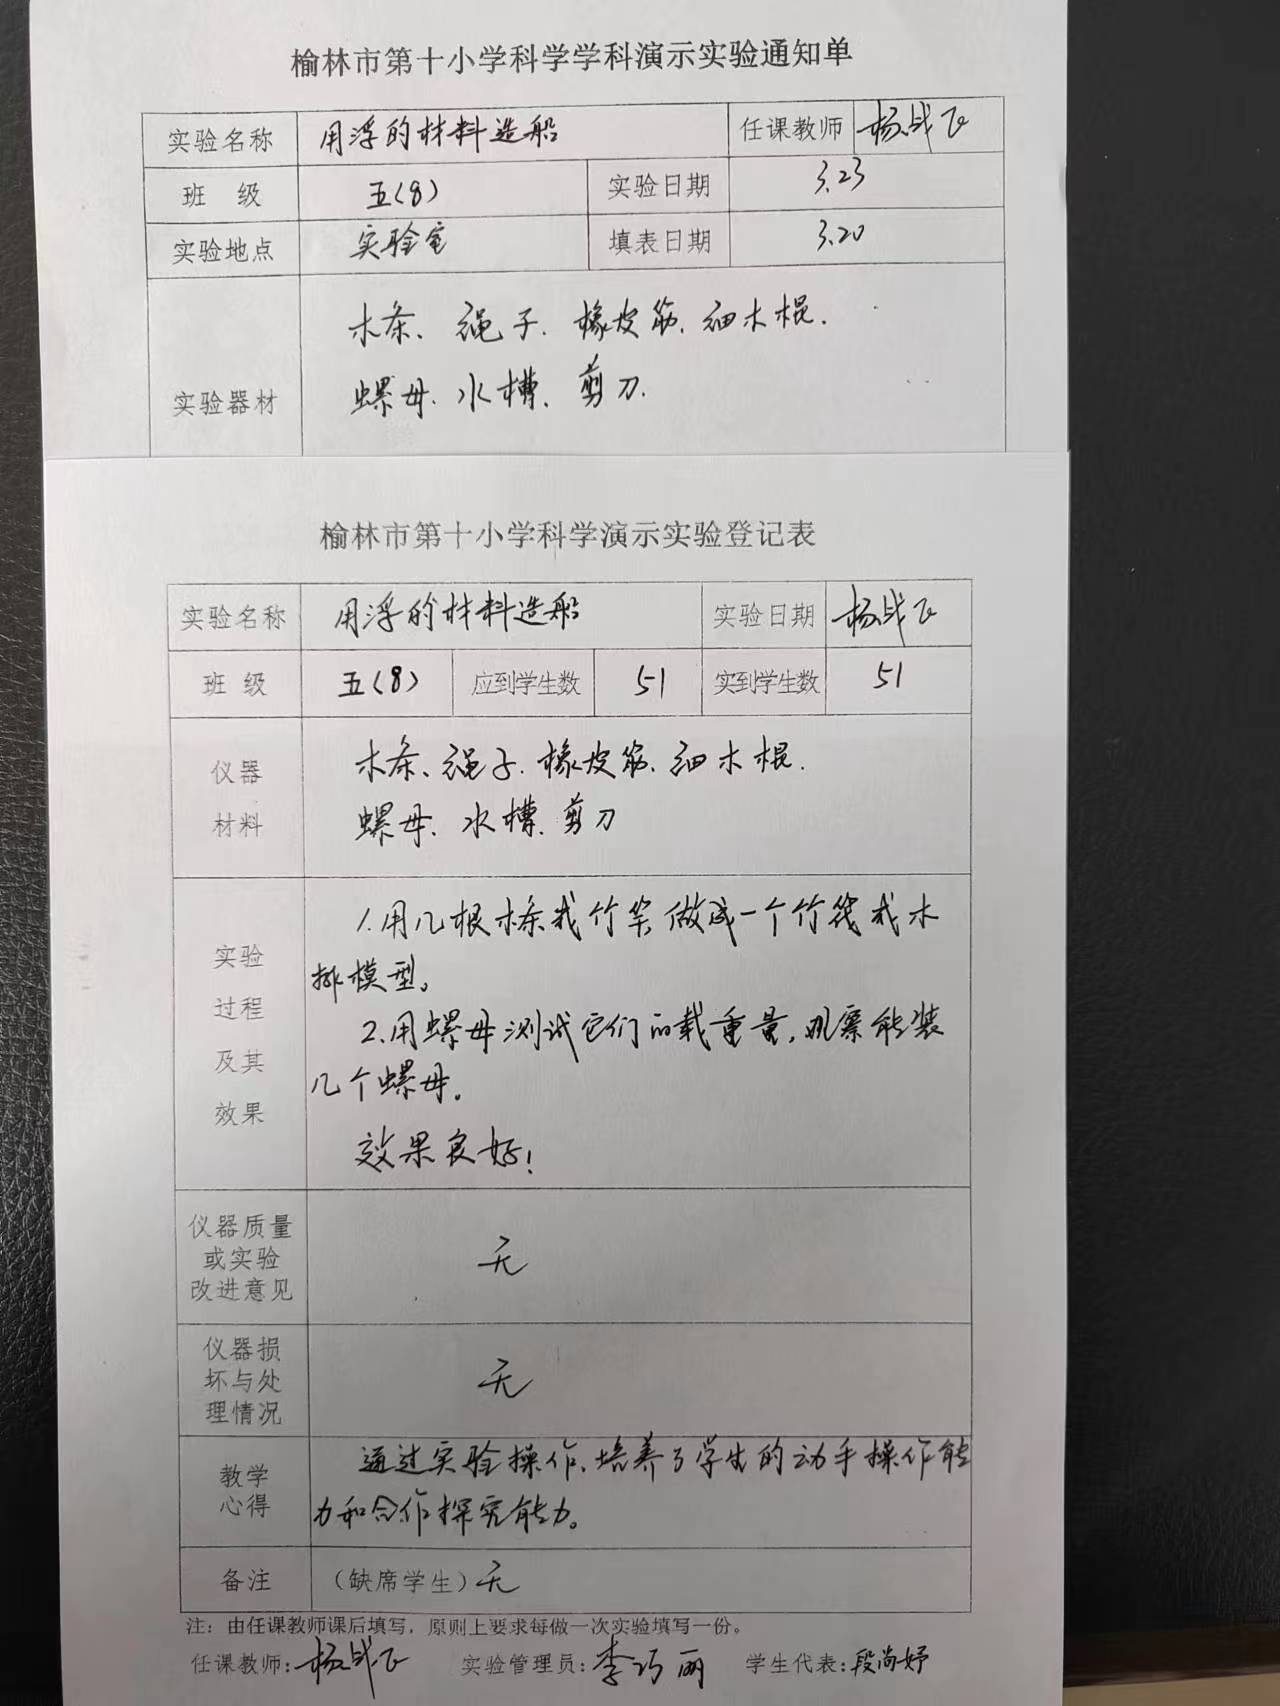 榆林市第十小学科学学科演示实验通知单
实验名称 用浮的材料造船 任课教师 杨战飞
班 级 五(8) 实验日期 3.23
实验地点 实验室 填表日期 3.20
实验器材
木条、绳子、橡皮筋、细木棍、
螺母、水槽、剪刀、
榆林市第十小学科学演示实验登记表
实验名称 用浮的材料造船 实验日期 杨战飞
班 级 五(8) 应到学生数 51 实到学生数 51
仪器
材料
木条、绳子、橡皮筋、细木棍、
螺母、水槽、剪刀
实验
过程
及其
效果
1.用几根木条或竹竿做成一个竹筏或木
排模型。
2.用螺母测试它们的载重量,观察能装
几个螺母。
效果良好!
仪器质量
或实验
改进意见
无
仪器损
坏与处
理情况
无
教学
心得
通过实验操作、培养了学生的动手操作能
力和合作探究能力。
备注 (缺席学生)无
注:由任课教师课后填写,原则上要求每做一次实验填写一份。
任课教师:杨战飞 实验管理员:李巧丽 学生代表:段尚妤